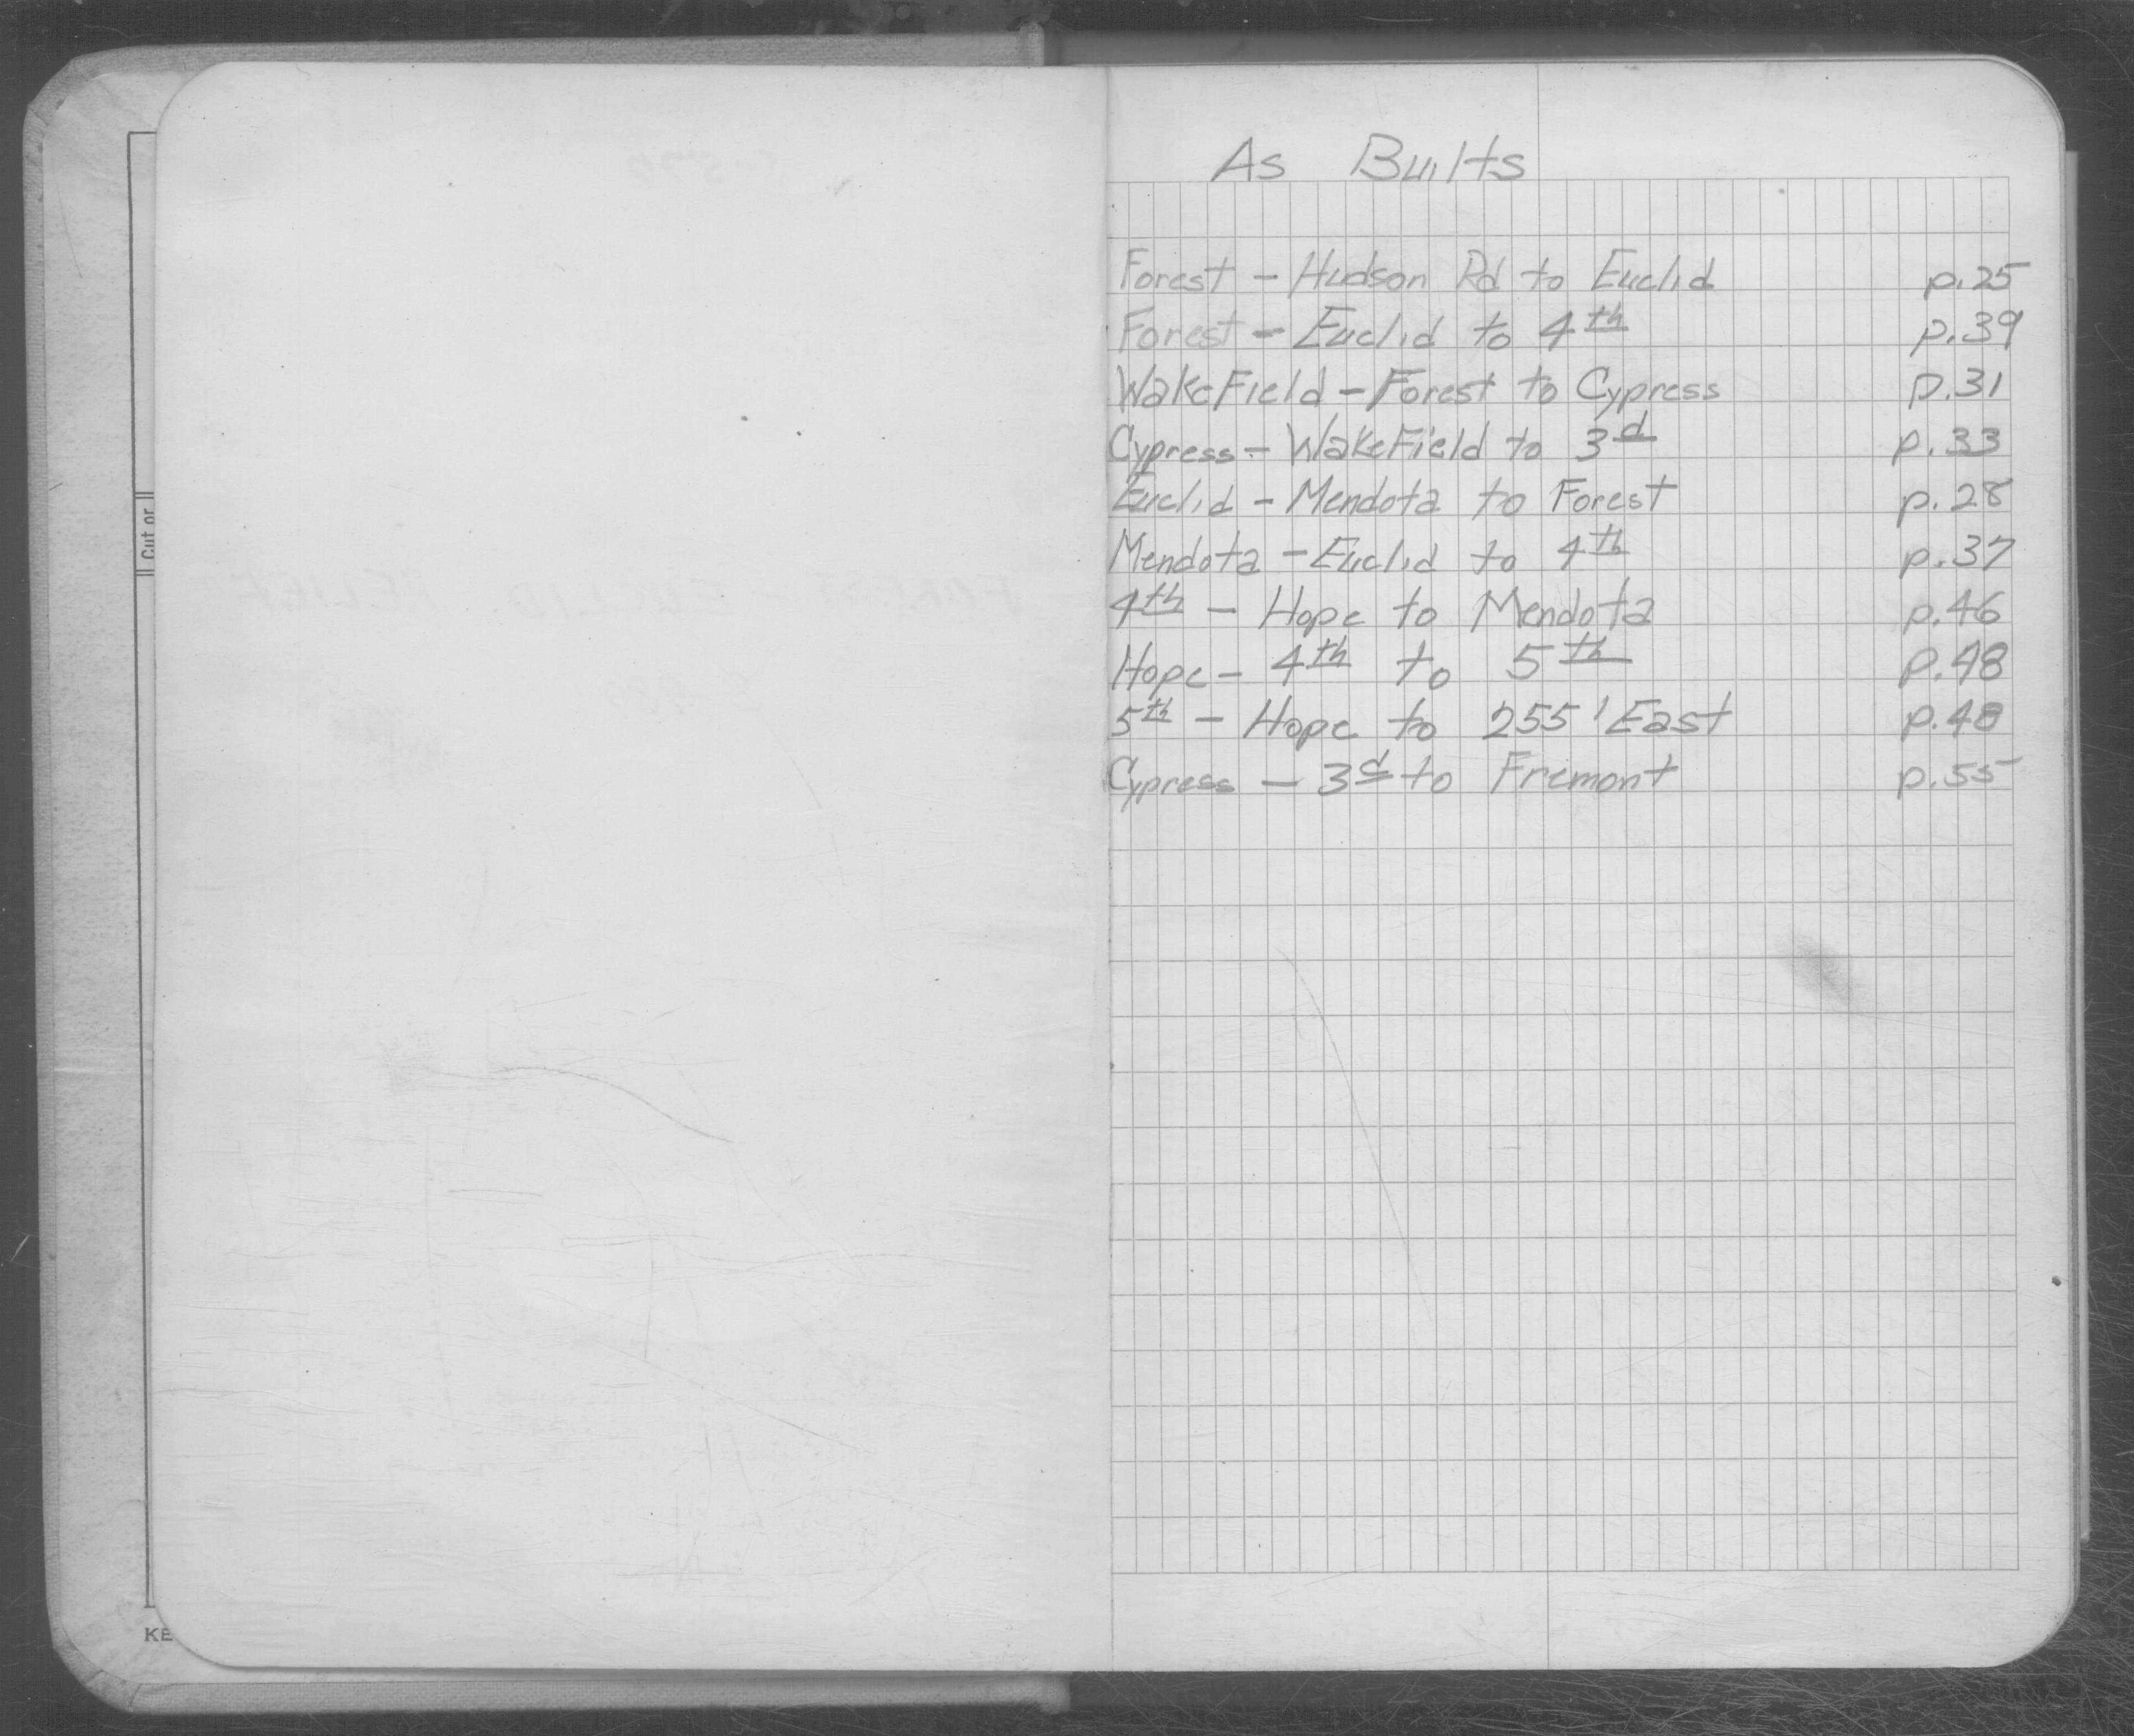 Cut or
KE
As Builts
Forest - Hudson Rd to Euclid p.25
Forest - Euclid to 4th p.39
WakeField - Forest to Cypress p.31
Cypress - WakeField to 3d p.33
Euclid - Mendota to Forest p.28
Mendota - Euclid to 4th p.37
4th - Hope to Mendota p.46
Hope - 4th to 5th p.48
5th - Hope to 255' East p.48
Cypress - 3d to Fremont p.55